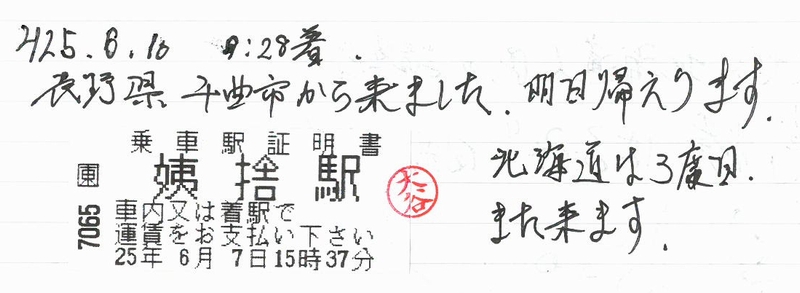 H25.6.10 9:28着.
長野県 千曲市から来ました. 明日帰えります.
北海道は3度目.
また来ます.
乗車駅証明書
姨捨駅
車内又は着駅で
運賃をお支払い下さい
25年 6月 7日15時37分
7065
大谷